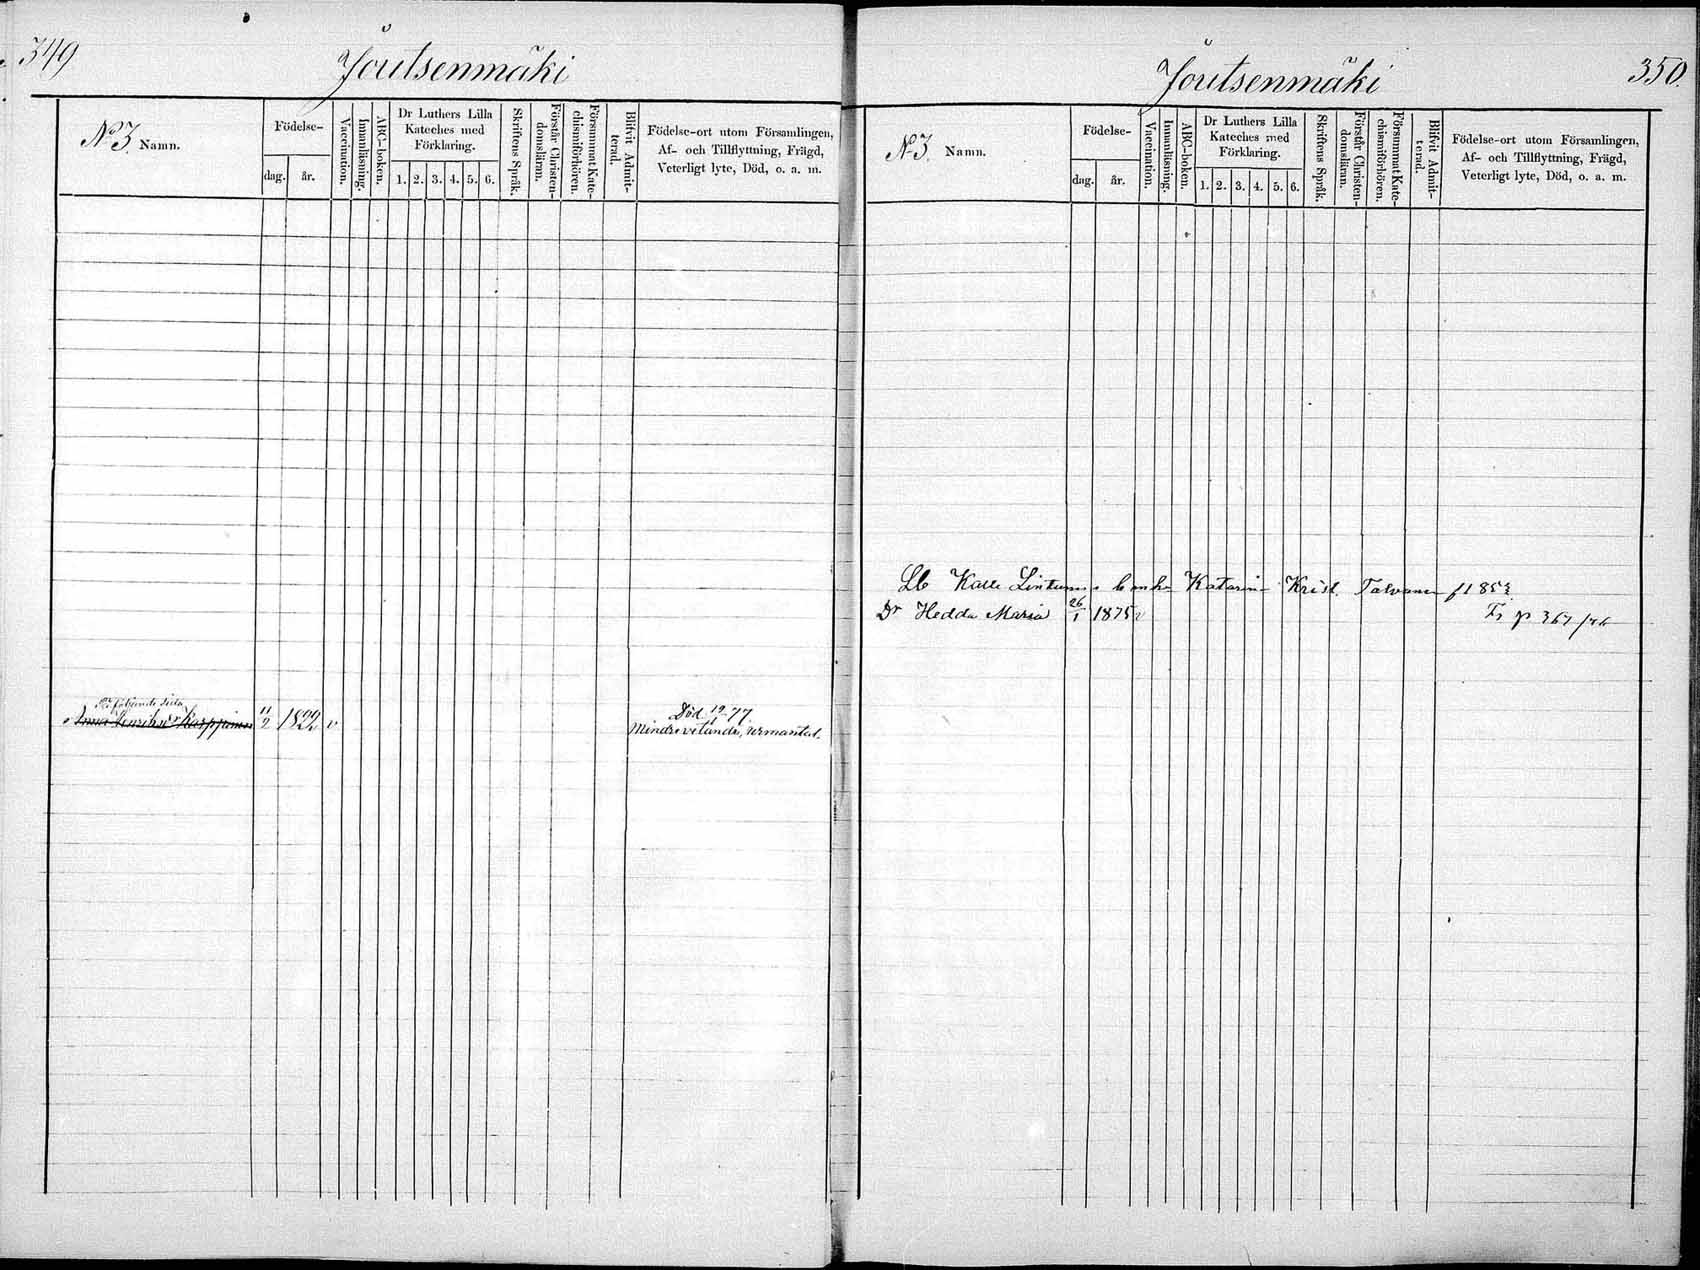 349
Joutsenmäki
No 3. Namn.
Födelse-
dag. år.
Vaccination.
Innanläsning.
ABC-boken.
Dr Luthers Lilla
Kateches med
Förklaring.
1. 2. 3. 4. 5. 6.
Skriftens Språk.
Förstår Christen-
domsläran.
Försummat Kate-
chismiförhören.
Blifvit Admit-
terad.
Födelse-ort utom Församlingen,
Af- och Tillflyttning, Frägd,
Veterligt lyte, Död, o. a. m.
På följande sida
Anna Henriksdr Karppinen 11/2 v
Död 19/1 77
Mindre vetande,
350.
Joutsenmäki
No 3. Namn.
Födelse-
dag. år.
Vaccination.
Innanläsning.
ABC-boken.
Dr Luthers Lilla
Kateches med
Förklaring.
1. 2. 3. 4. 5. 6.
Skriftens Språk.
Förstår Christen-
domsläran.
Försummat Kate-
chismiförhören.
Blifvit Admit-
terad.
Födelse-ort utom Församlingen,
Af- och Tillflyttning, Frägd,
Veterligt lyte, Död, o. a. m.
Lb Kalle Katarina Krist. f 1853
Dr Hedda Maria 26/1 1875 v p 367/76